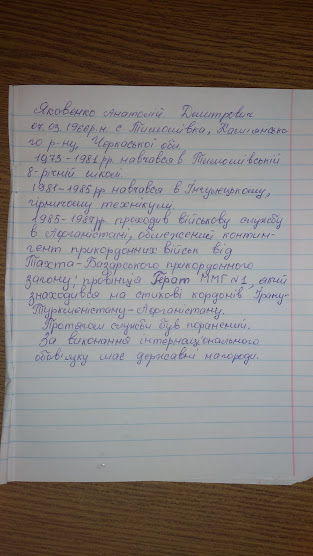 Яковенко Анатолій Дмитрович
04.03.1966р.н. с Тимошівка, Кам'янсько-
го р-ну, Черкаської обл.
1973-1981рр. навчався в Тимошівській
8-річній школі.
1981-1985рр навчався в Інгулецькому,
гірничому технікумі.
1985-1987рр. проходив військову службу
в Афганістані, обмежений контин-
гент прикордонних військ від
Тахта-Базарського прикордонного
загону, провінція Герат ММГ №1, який
знаходився на стикові кордонів Ірану-
Туркменістану-Афганістану.
Протягом служби був поранений.
За виконання інтернаціонального
обов'язку має державні нагороди.